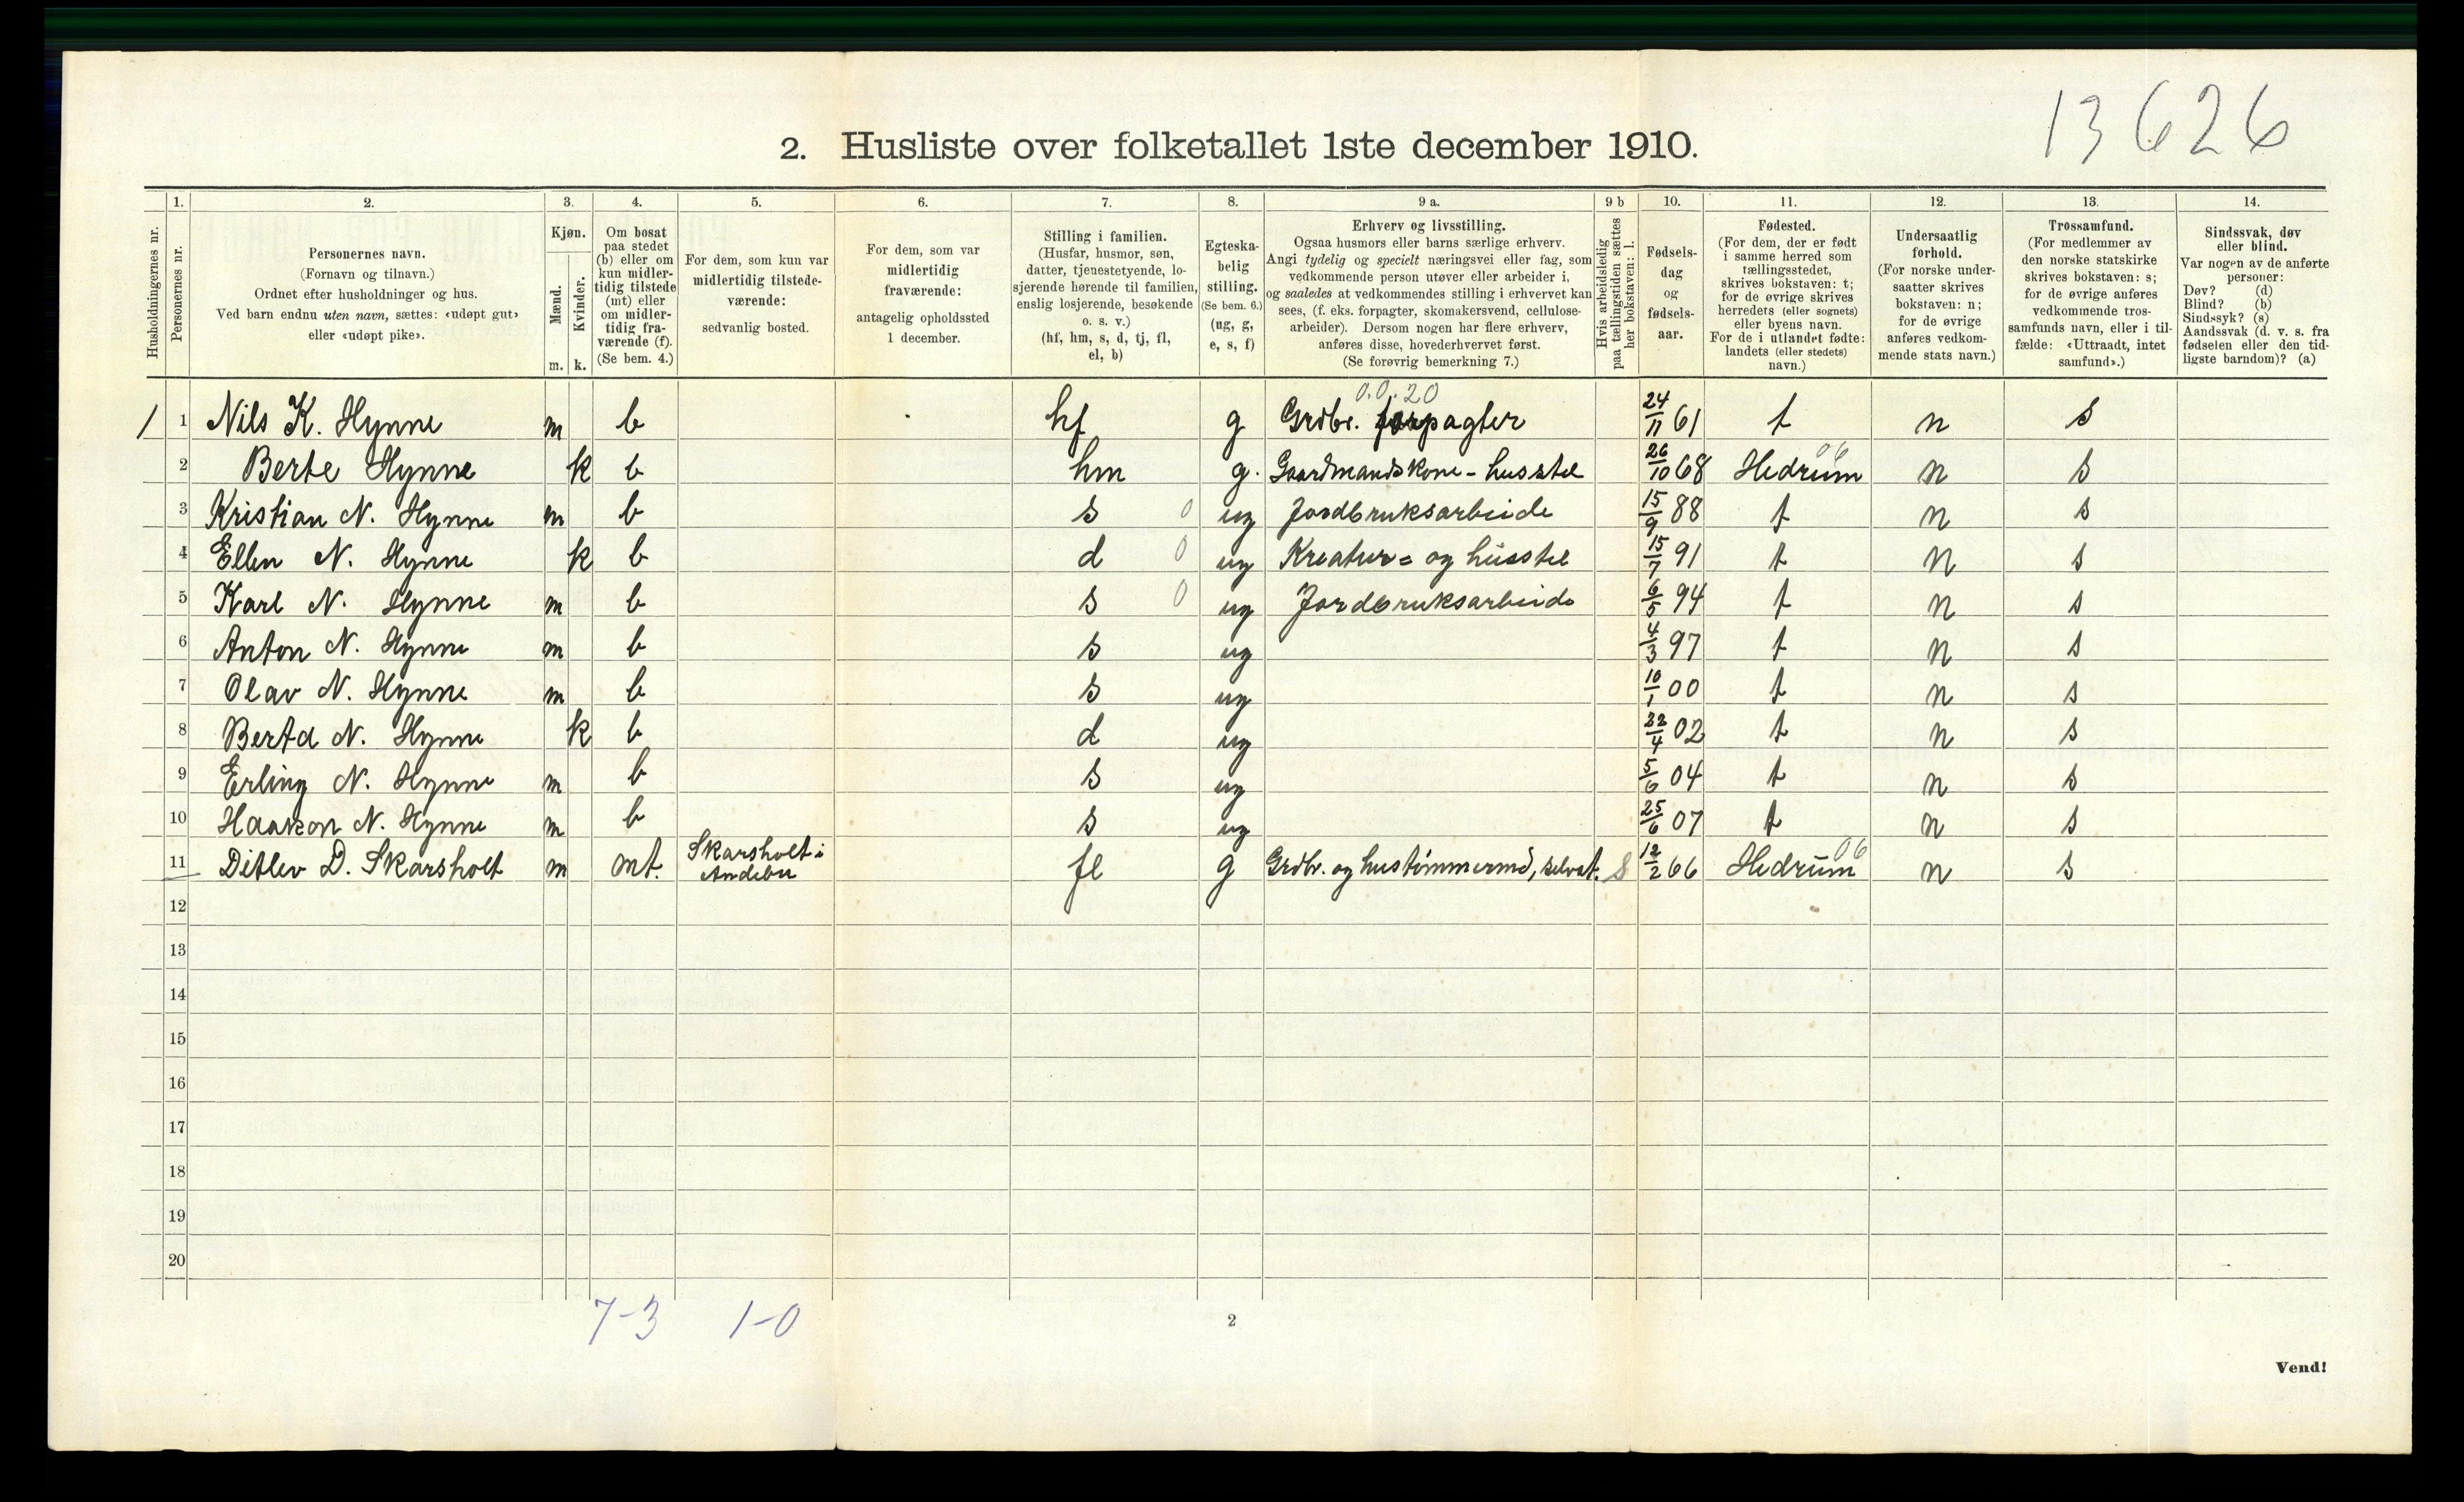 13626
2. Husliste over folketallet 1ste december 1910.
Husholdningernes nr.
1.
Personernes nr.
2.
Personernes navn.
(Fornavn og tilnavn.)
Ordnet efter husholdninger og hus.
Ved barn endnu uten navn, sættes: «udøpt gut»
eller «udøpt pike».
3.
Kjøn.
Mænd.
Kvinder.
m. k.
4.
Om bosat
paa stedet
(b) eller om
kun midler-
tidig tilstede
(mt) eller
om midler-
tidig fra-
værende (f).
(Se bem. 4.)
5.
For dem, som kun var
midlertidig tilstede-
værende:
sedvanlig bosted.
6.
For dem, som var
midlertidig
fraværende:
antagelig opholdssted
1 december.
7.
Stilling i familien.
(Husfar, husmor, søn,
datter, tjenestetyende, lo-
sjerende hørende til familien,
enslig losjerende, besøkende
o. s. v.)
(hf, hm, s, d, tj, fl,
el, b)
8.
Egteska-
belig
stilling.
(Se bem. 6.)
(ug, g,
e, s, f)
9 a.
Erhverv og livsstilling.
Ogsaa husmors eller barns særlige erhverv.
Angi tydelig og specielt næringsvei eller fag, som
vedkommende person utøver eller arbeider i,
og saaledes at vedkommendes stilling i erhvervet kan
sees, (f. eks. forpagter, skomakersvend, cellulose-
arbeider). Dersom nogen har flere erhverv,
anføres disse, hovederhvervet først.
(Se forøvrig bemerkning 7.)
9 b
Hvis arbeidsledig
paa tællingstiden sættes
her bokstaven: l.
10.
Fødsels-
dag
og
fødsels-
aar.
11.
Fødested.
(For dem, der er født
i samme herred som
tællingsstedet,
skrives bokstaven: t;
for de øvrige skrives
herredets (eller sognets)
eller byens navn.
For de i utlandet fødte:
landets (eller stedets)
navn.)
12.
Undersaatlig
forhold.
(For norske under-
saatter skrives
bokstaven: n;
for de øvrige
anføres vedkom-
mende stats navn.)
13.
Trossamfund.
(For medlemmer av
den norske statskirke
skrives bokstaven: s;
for de øvrige anføres
vedkommende tros-
samfunds navn, eller i til-
fælde: «Uttraadt, intet
samfund».)
14.
Sindssvak, døv
eller blind.
Var nogen av de anførte
personer:
Døv? (d)
Blind? (b)
Sindssyk? (s)
Aandssvak (d. v. s. fra
fødselen eller den tid-
ligste barndom)? (a)
0.0.20
1 1 Nils K. Hynne m b hf g Grdbr. forpagter 24/11 61 t n s
2 Berte Hynne k b hm g. Gaardmandskone - husstel 26/10 68 Hedrum 06 n s
3 Kristian N. Hynne m b s 0 ug Jordbruksarbeide 15/9 88 t n s
4 Ellen N. Hynne k b d 0 ug Kreatur= og husstel 15/7 91 t n s
5 Karl N. Hynne m b s 0 ug Jordbruksarbeide 6/5 94 t n s
6 Anton N. Hynne m b s ug 4/3 97 t n s
7 Olav N. Hynne m b s ug 10/1 00 t n s
8 Berta N. Hynne k b d ug 22/4 02 t n s
9 Erling N. Hynne m b s ug 5/6 04 t n s
10 Haakon N. Hynne m b s ug 25/6 07 t n s
11 Ditlev D. Skarsholt m mt. Skarsholt i Andebu fl g Grdbr. og hustømmermd, selvst. s 12/2 66 Hedrum 06 n s
12
13
14
15
16
17
18
19
20
7-3 1-0
2
Vend!